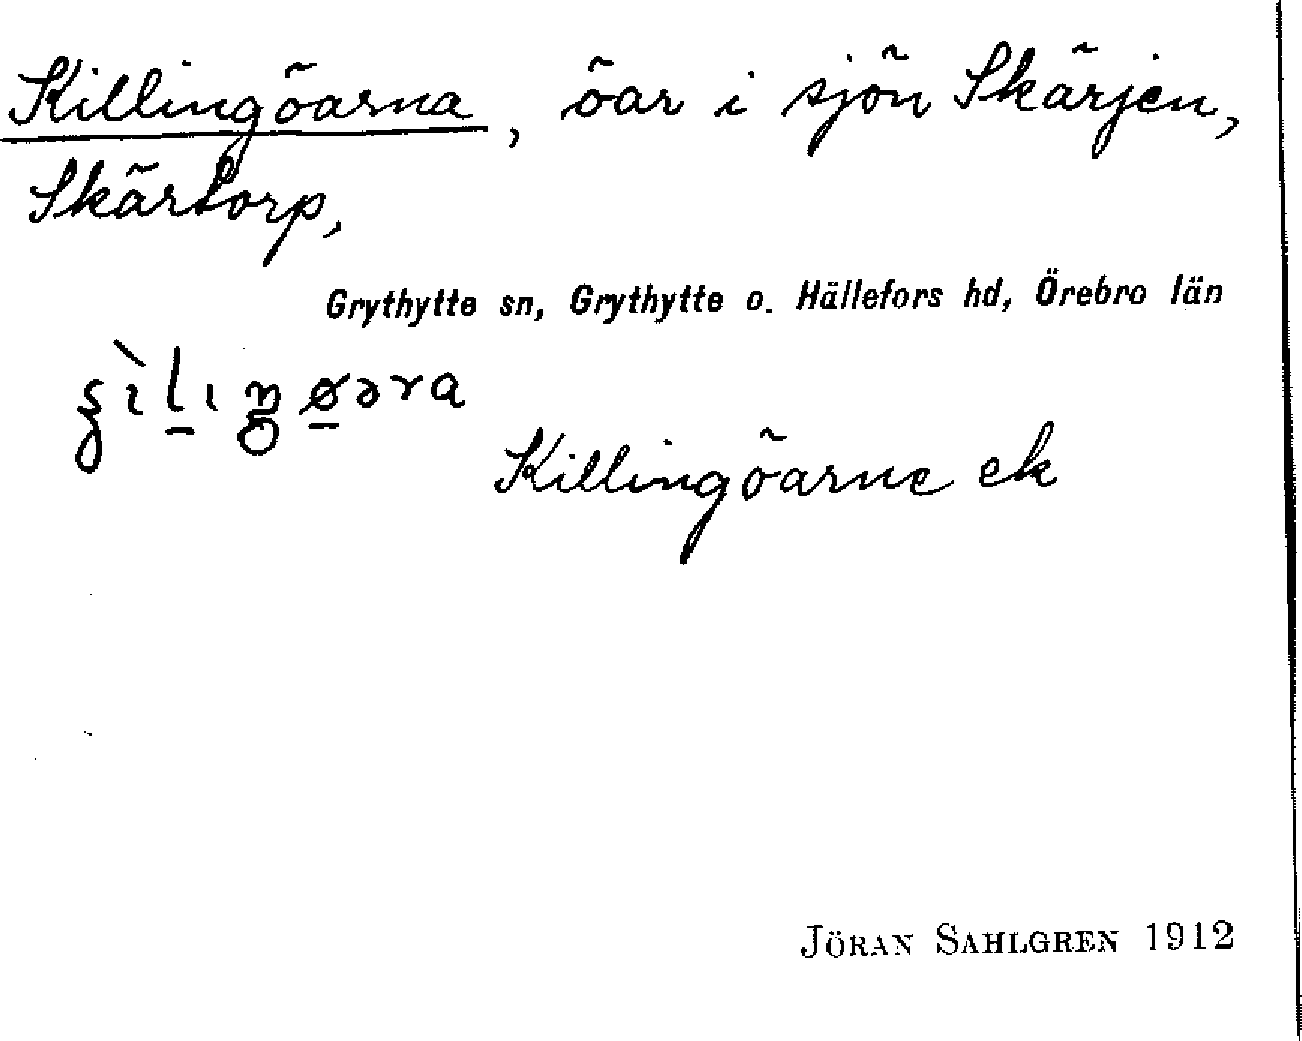 Killingöarna, öar i sjön Skärjen,
Skärtorp,
Grythytte sn, Grythytte o. Hällefors hd, Örebro län
Killingöarne ek
JÖRAN SAHLGREN 1912